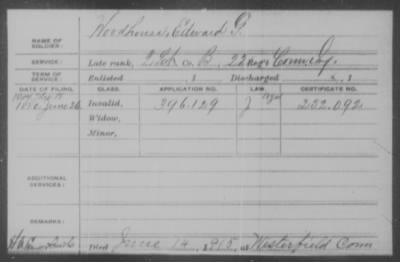 NAME OF SOLDIER: Woodhouse, Edward G.
SERVICE: Late rank, Co. B, 22 Reg't Conn. Inf.
TERM OF SERVICE: Enlisted , 1 Discharged , 1
DATE OF FILING. CLASS. APPLICATION NO. LAW. CERTIFICATE NO.
1880 June 26 Invalid, 396.129 J 232.092
Widow,
Minor,
ADDITIONAL SERVICES:
REMARKS:
Died June 14, 1915, at Wethersfield Conn